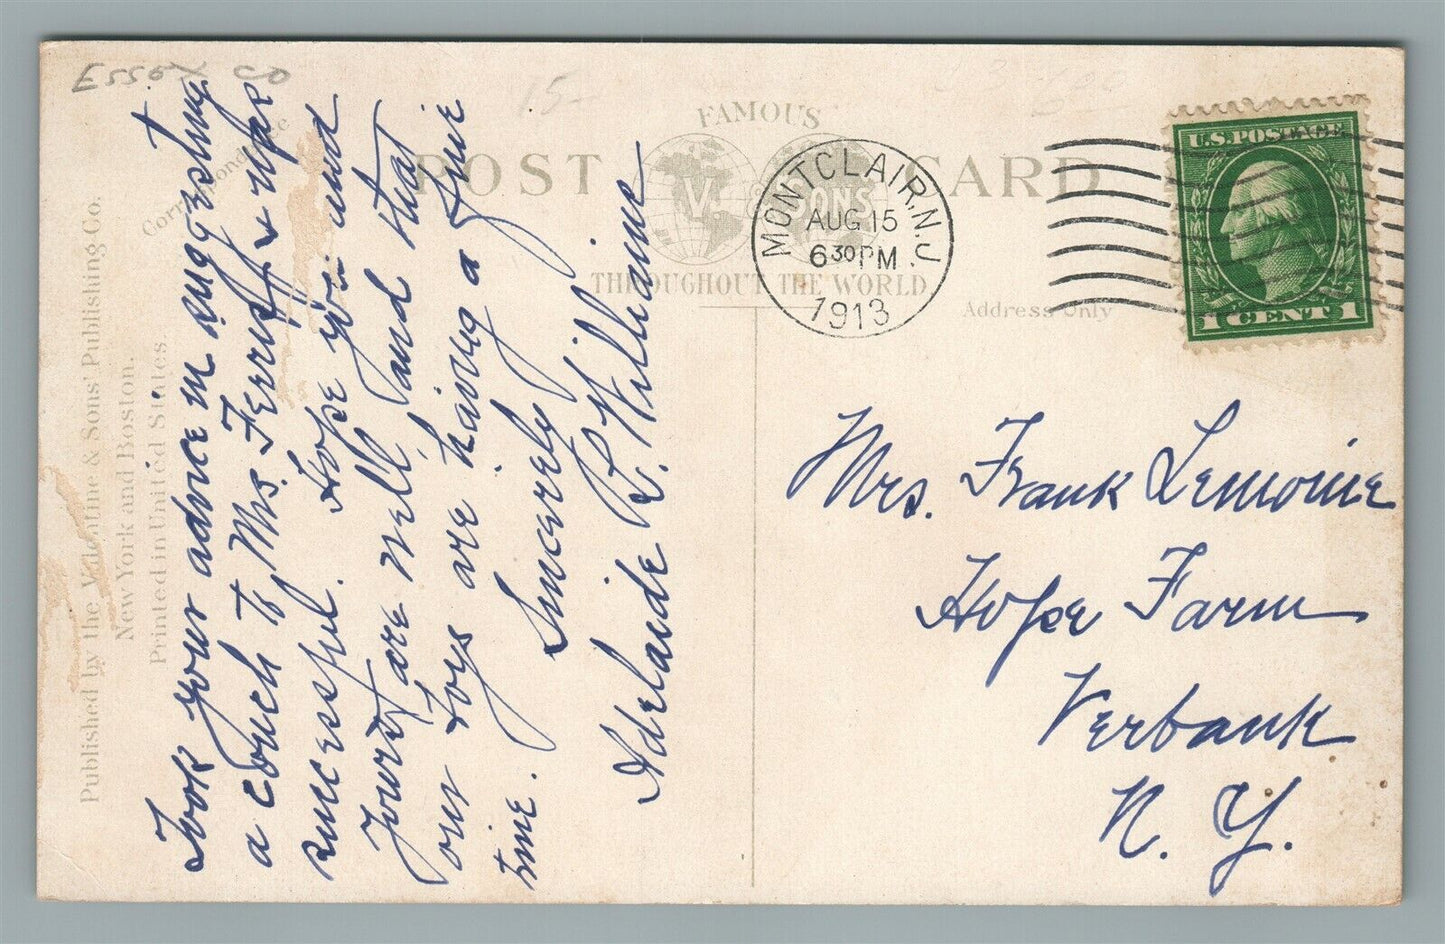 Essex Co
15-
FAMOUS
POST CARD
V. & SONS
THROUGHOUT THE WORLD
Correspondence
Address Only
Published by the Valentine & Sons' Publishing Co.
New York and Boston.
Printed in United States.
MONTCLAIR, N.J.
AUG 15
630 PM
1913
U.S. POSTAGE
1 CENT 1
Took your advice in suggesting
a couch to Mrs. Ferris & was
successful. Hope you and
are well and that
our boys are having a fine
time.
Sincerely
Adelaide R. Williams
Mrs. Frank Lemoine
Hope Farm
Verbank
N. Y.